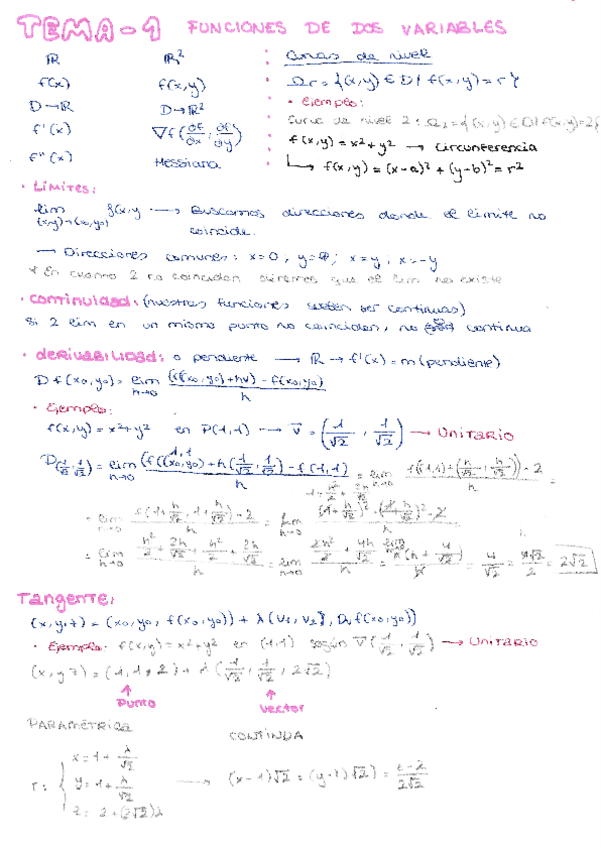 TEMA-1 FUNCIONES DE DOS VARIABLES
ℝ ℝ²
f(x) f(x,y)
D→ℝ D→ℝ²
f'(x) ∇f(∂f/∂x, ∂f/∂y)
f''(x) Hessiana
Curvas de nivel
Ωr = {(x,y) ∈ D / f(x,y) = r}
• Ejemplo:
Curva de nivel 2: Ω₂ = {(x,y) ∈ D / f(x,y) = 2}
f(x,y) = x² + y² → Circunferencia
↳ f(x,y) = (x-a)² + (y-b)² = r²
• Límites:
lim (x,y)→(x₀,y₀) f(x,y → Buscamos direcciones donde el limite no
coincide.
→ Direcciones comunes: x=0, y=0; x=y, x=-y
* En cuanto 2 no coincidan diremos que el lim no existe
• continuidad: (nuestras funciones suelen ser continuas)
Si 2 lim en un mismo punto no coinciden, no continua
• derivabilidad: o pendiente → ℝ → f'(x) = m (pendiente)
D f(x₀,y₀) = lim h→0 (f((x₀,y₀)+hv) - f(x₀,y₀)) / h
• Ejemplo:
f(x,y) = x²+y² en P(1,1) → v = (1/√2, 1/√2) → Unitario
D(1/√2, 1/√2) = lim h→0 (f((x₀,y₀) + h(1/√2, 1/√2) - f(1,1)) / h = lim h→0 (f((1,1)+(h/√2, h/√2)) - 2) / h =
= lim h→0 (f(1+h/√2, 1+h/√2) - 2) / h = lim h→0
= lim h→0 (h²/2 + 2h/√2 + h²/2 + 2h/√2) / h = lim h→0 = 4/√2 = 4√2/2 = 2√2
Tangente:
(x,y,z) = (x₀,y₀, f(x₀,y₀)) + λ(v₁, v₂, Dᵥ f(x₀,y₀))
• Ejemplo: f(x,y) = x²+y² en (1,1) según v(1/√2, 1/√2) → Unitario
(x,y,z) = (1,1,2) + λ(1/√2, 1/√2, 2√2)
Punto vector
PARAMÉTRICA CONTINUA
x = 1 + λ/√2
r: y = 1 + λ/√2 → (x-1)√2 = (y-1)√2) = z-2/2√2
z = 2 + (2√2)λ